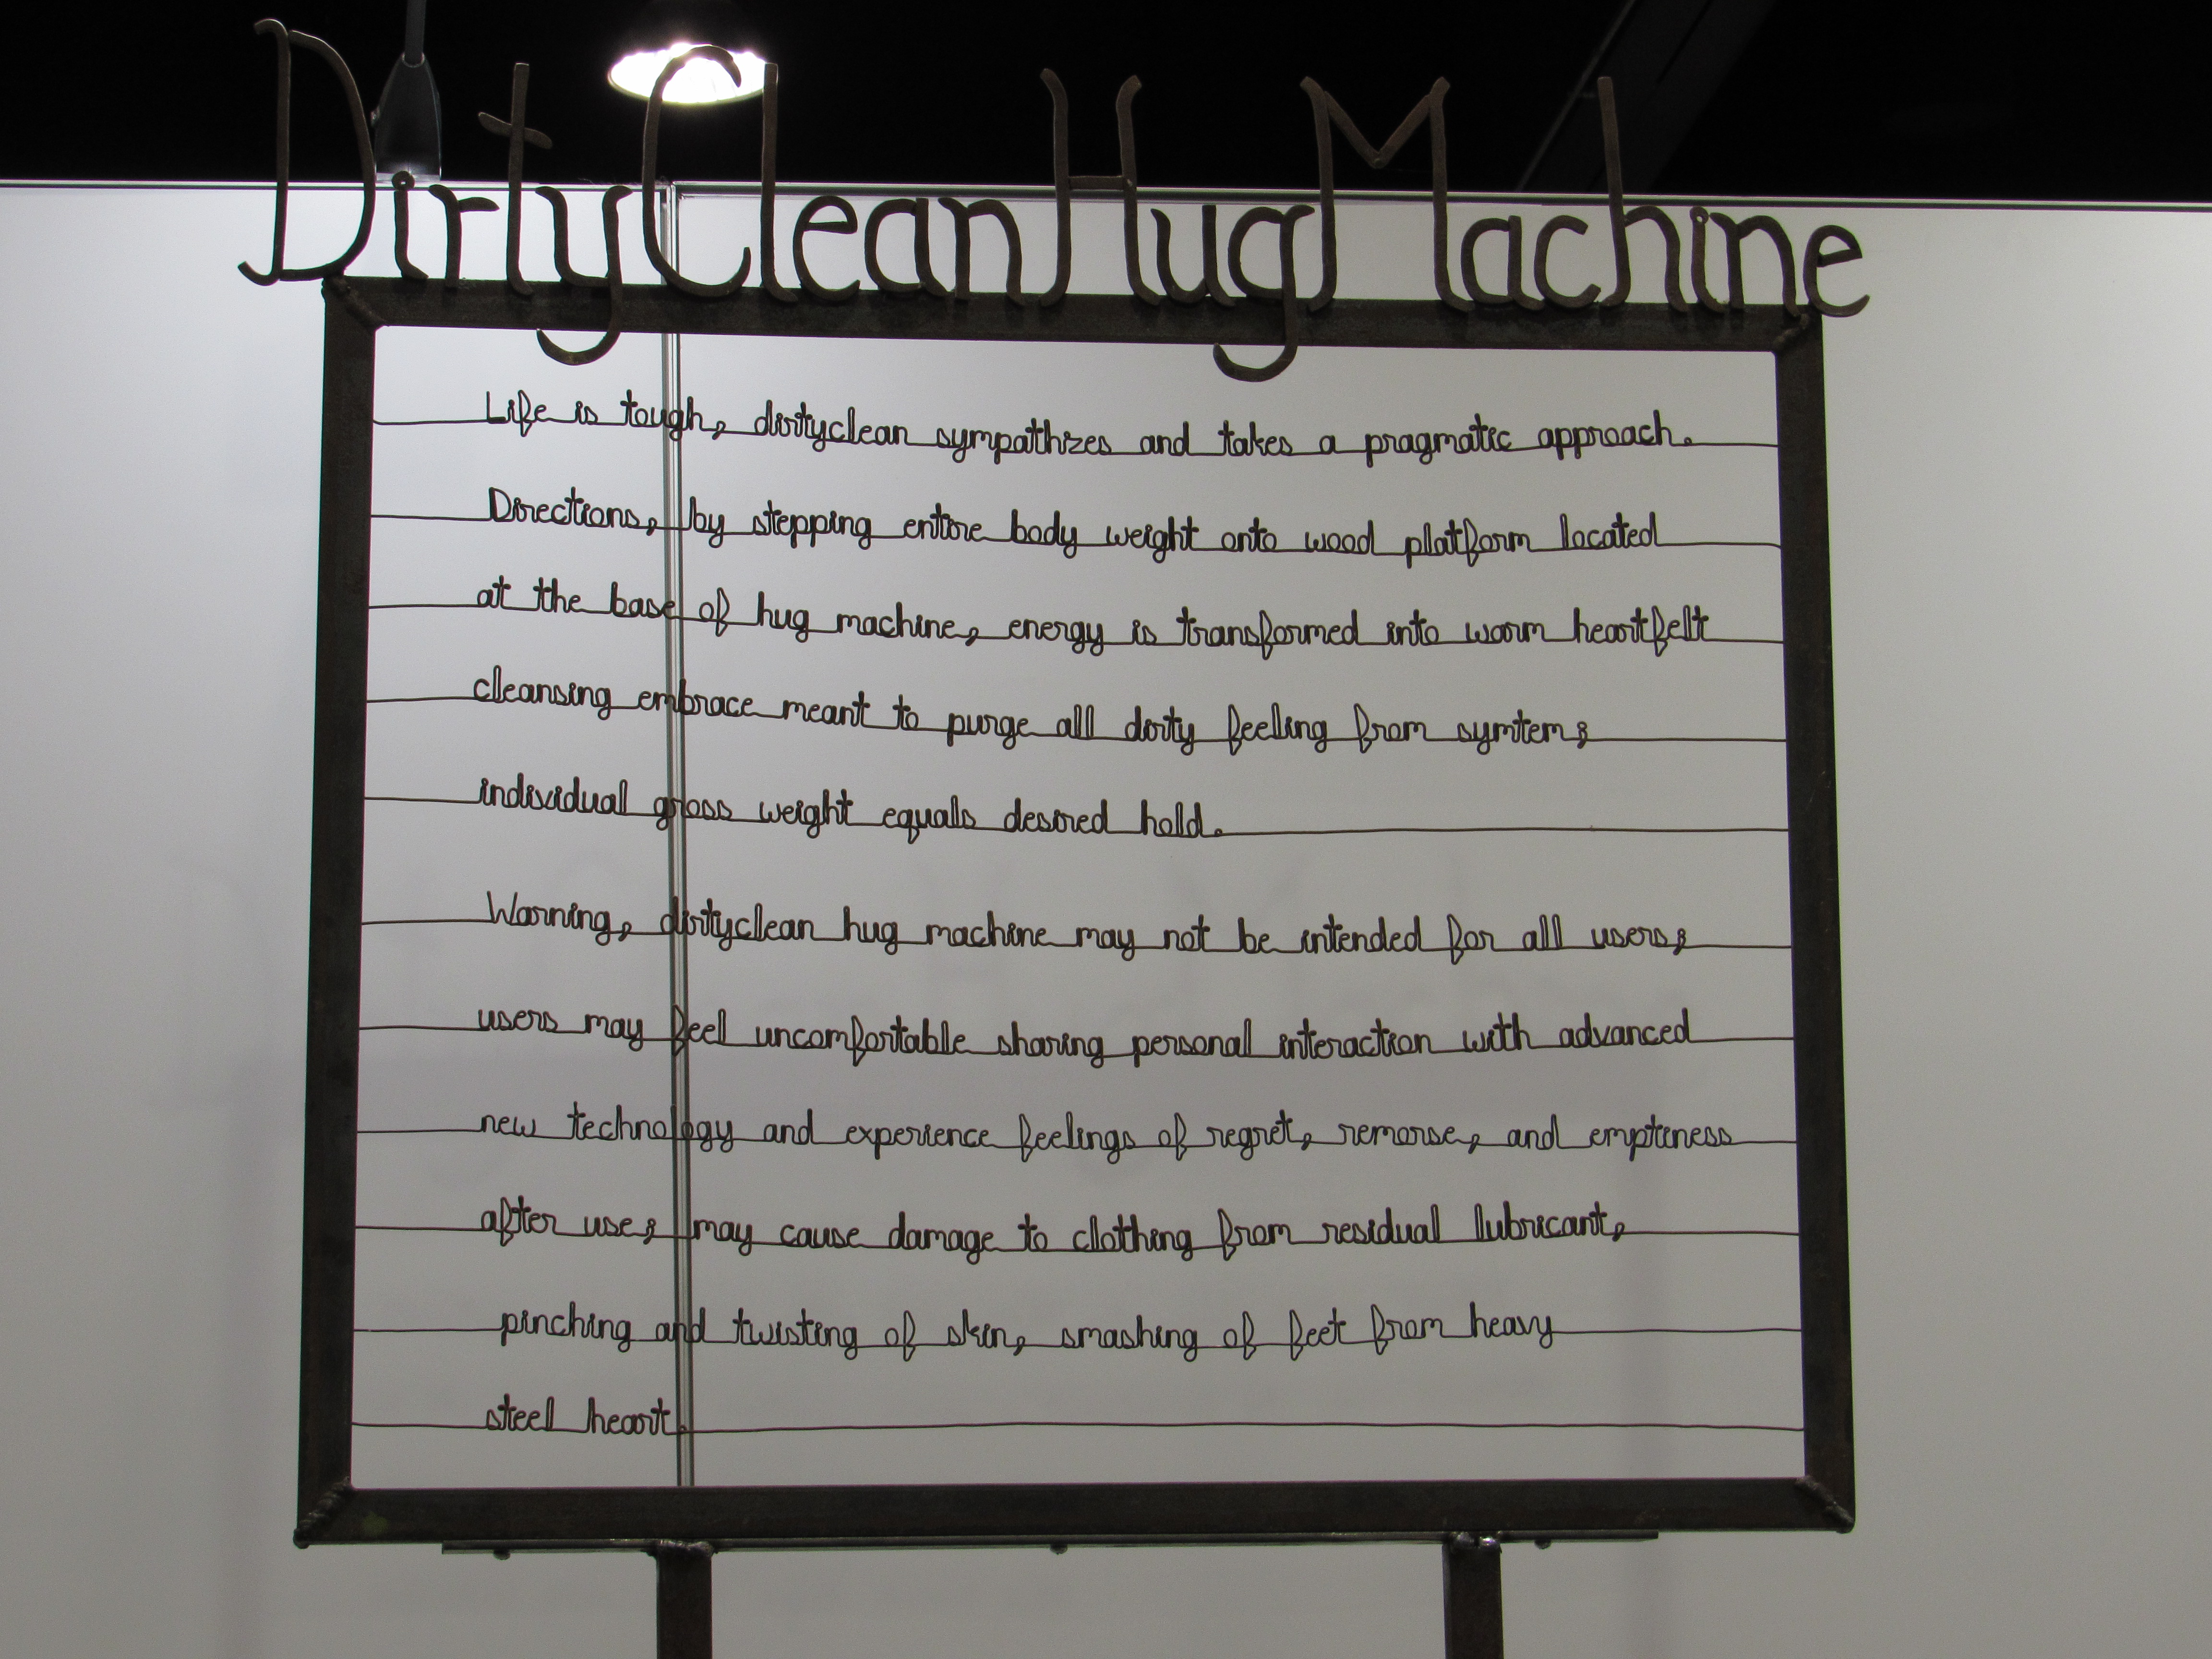 DirtyCleanHugMachine
Life is tough, dirtyclean sympathizes and takes a pragmatic approach.
Directions, by stepping entire body weight onto wood platform located
at the base of hug machine, energy is transformed into warm heartfelt
cleansing embrace meant to purge all dirty feeling from symtem;
individual gross weight equals desired hold.
Warning, dirtyclean hug machine may not be intended for all users;
users may feel uncomfortable sharing personal interaction with advanced
new technology and experience feelings of regret, remorse, and emptiness
after use; may cause damage to clothing from residual lubricant,
pinching and twisting of skin, smashing of feet from heavy
steel heart.